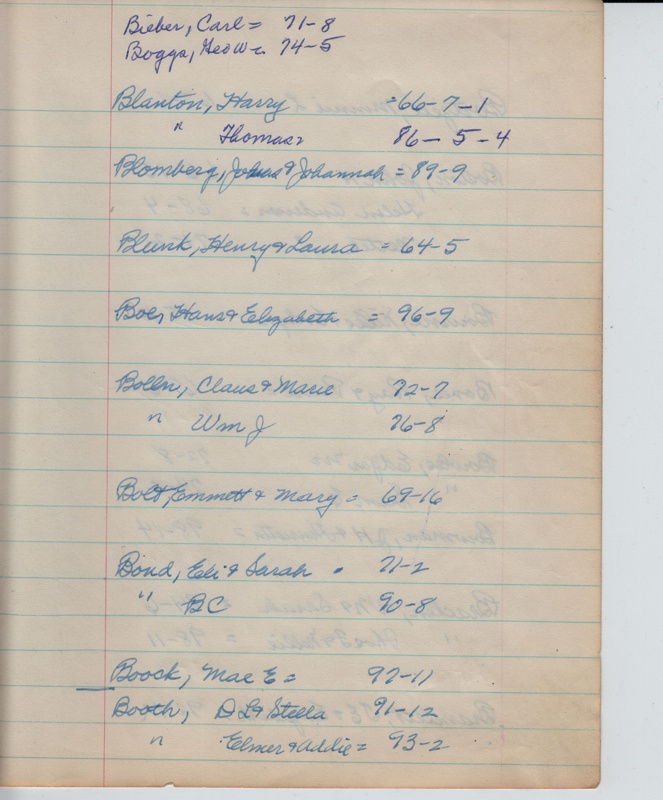 Bieber, Carl = 71-8
Boggs, Geo W = 74-5
Blanton, Harry = 66-7-1
" Thomas 86-5-4
Blomberg, & Johannah = 89-9
Blunk, Henry & Laura = 64-5
Boe, Hans & Elizabeth = 96-9
Bolln, Claus & Marie 72-7
" Wm J 76-8
Bolt, Emmett & Mary = 69-16
Bond, Eli & Sarah . 71-2
" BC 90-8
Boock, Mae E = 97-11
Booth, D L & Stella 91-12
" Elmer & Addie = 93-2